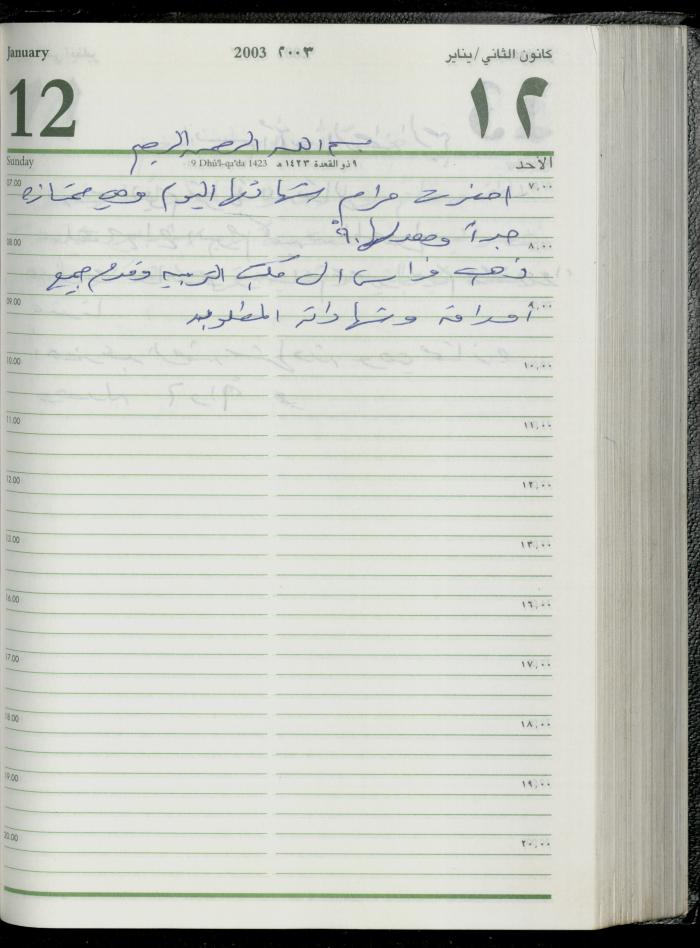 January 2003 ٢٠٠٣ كانون الثاني/يناير
12 ١٢
بسم الله الرحمن الرحيم
Sunday 9 Dhū'l-qa'da 1423 ٩ ذو القعدة ١٤٢٣ هـ الأحد
07.00 ٧,٠٠
احضرت مرام شهادتها اليوم وهي ممتازه
جداً ومعدلها ٩٠
08.00 ٨,٠٠
ذهب فراس الى مكتب التربيه وقدم جميع
09.00 ٩,٠٠
اوراقه وشهاداته المطلوبه
10.00 ١٠,٠٠
11.00 ١١,٠٠
12.00 ١٢,٠٠
13.00 ١٣,٠٠
16.00 ١٦,٠٠
17.00 ١٧,٠٠
18.00 ١٨,٠٠
19.00 ١٩,٠٠
20.00 ٢٠,٠٠